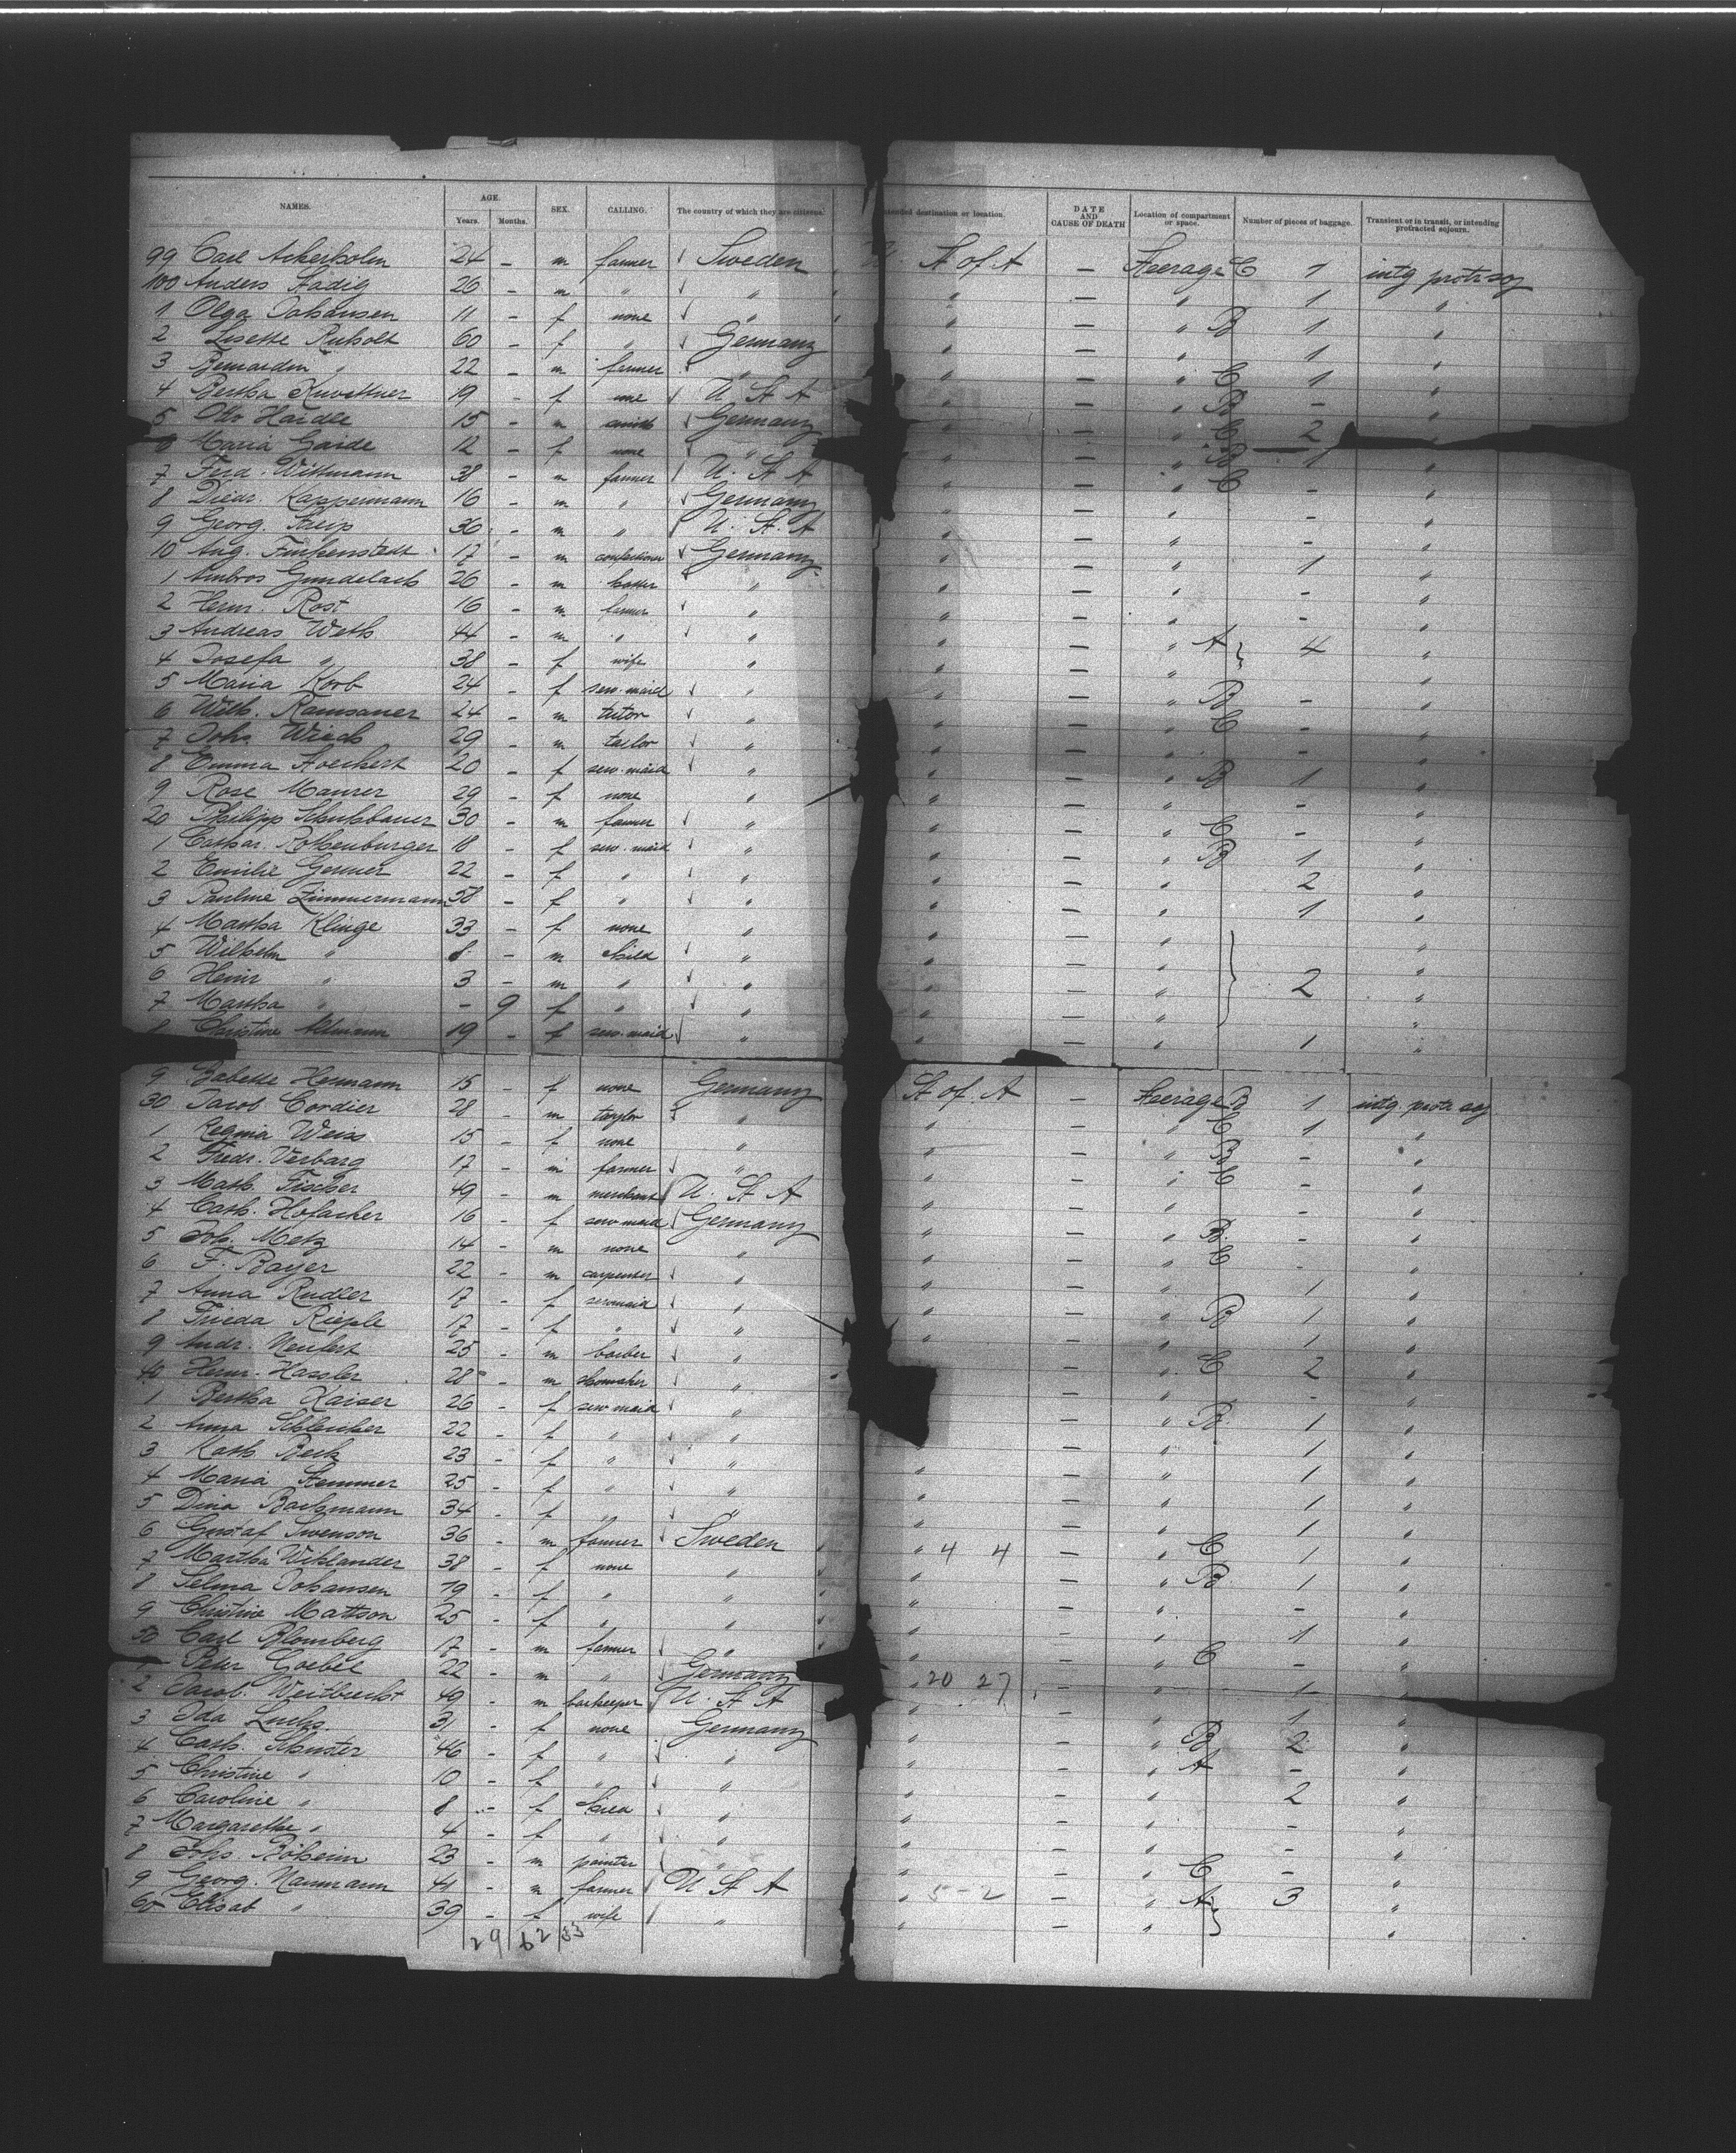 NAMES. AGE. Years. Months. SEX. CALLING. The country of which they are citizens. Intended destination or location. DATE AND CAUSE OF DEATH Location of compartment or space. Number of pieces of baggage. Transient or in transit, or intending protracted sojourn.
99 Carl Ackerholm 24 - m farmer Sweden St of A - Steerage C 1 intg protr soj
100 Anders Stadig 26 - m " " " - " 1 "
1 Olga Johansen 11 - f none " " - " B 1 "
2 Lisette Rubolt 60 - f " Germany " - " 1 "
3 Bernardin " 22 - m farmer " " - " C 1 "
4 Bertha 19 - f none U St A " - " B - "
5 Otto Haidle 15 - m Germany " - " C 2 "
6 Maria Gaide 12 - f none " " - " B 1 "
7 Ferd. Wittmann 38 - m farmer U. St A " - " C - "
8 Diedr. Kappermann 16 - m " Germany " - " - "
9 Georg. 36 - m " U. St. A " - " - "
10 Aug. Finkenstedt 17 - m confectioner Germany " - " 1 "
1 Ambros Gundelach 26 - m " " - " - "
2 Herm. Rost 16 - m farmer " " - " - "
3 Andreas Weth 44 - m " " " - " A } 4 "
4 Josefa " 38 - f wife " " - " "
5 Maria Korb 24 - f serv. maid " " - " B - "
6 Wilh. Ramsauer 24 - m tutor " " - " C - "
7 Johs. 29 - m tailor " " - " - "
8 Emma 20 - f serv. maid " " - " B 1 "
9 Rose Maurer 29 - f none " " - " - "
20 Philipp 30 - m farmer " " - " C - "
1 Cathar. Rothenburger 18 - f serv. maid " " - " B 1 "
2 Emilie Gerner 22 - f " " " - " 2 "
3 Pauline Zimmermann 58 - f " " " - " 1 "
4 Martha Klinge 33 - f none " " - " "
5 Wilhelm " 8 - m child " " - " "
6 Heinr " 3 - m " " " - " } 2 "
7 Martha " - 9 f " " " - " "
8 Christine 19 - f serv. maid " " - " 1 "
9 Babette Hermann 15 - f none Germany St of A - Steerage B 1 intg protr soj
30 Jacob Cordier 28 - m taylor " " - " C 1 "
1 Regina Weiss 15 - f none " " - " B - "
2 Fredr. Verbarg 17 - m farmer " " - " C - "
3 Math. Fischer 49 - m merchant U. St A " - " - "
4 Cath. Hofacker 16 - f serv maid Germany " - " B. - "
5 Joh. Metz 14 - m none " " - " C - "
6 F. Bayer 22 - m carpenter " " - " 1 "
7 Anna Rudler 17 - f servmaid " " - " B 1 "
8 Frieda Rieple 17 - f " " " - " 1 "
9 Andr. Neubert 25 - m barber " - " C 2 "
40 Herm. Hassler 28 - m shomaker " - " - "
1 Bertha Kaiser 26 - f serv maid " - " B. 1 "
2 Anna 22 - f " " - " 1 "
3 Kath Beck 23 - f " " " - " 1 "
4 Maria Stemmer 25 - f " " " - " 1 "
5 Dina Bachmann 34 - f " " " - " 1 "
6 Gustaf Swenson 36 - m farmer Sweden " 4 4 - " C 1 "
7 Martha Wiklander 38 - f none " " - " B 1 "
8 Selma Johansen 19 - f " " " - " - "
9 Christine Mattson 25 - f " " " - " 1 "
50 Carl Blomberg 17 - m farmer " " - " C - "
1 Peter Goebel 22 - m " Germany " 20 27 - " 1 "
2 Jacob. Weitbrecht 49 - m barkeeper U. St A " - " 1 "
3 Ida 31 - f none Germany " - " B 2 "
4 Cath. Schuster 46 - f " " " - " A - "
5 Christine " 10 - f " " " - " 2 "
6 Caroline " 8 - f child " " - " - "
7 Margarethe " 4 - f " " " - " - "
8 Johs. 23 - m painter " " - " C - "
9 Georg. Naumann 41 - m farmer U St A " 5-2 - " A } 3 "
60 Elisab " 39 - f wife " " - " "
29 62 33